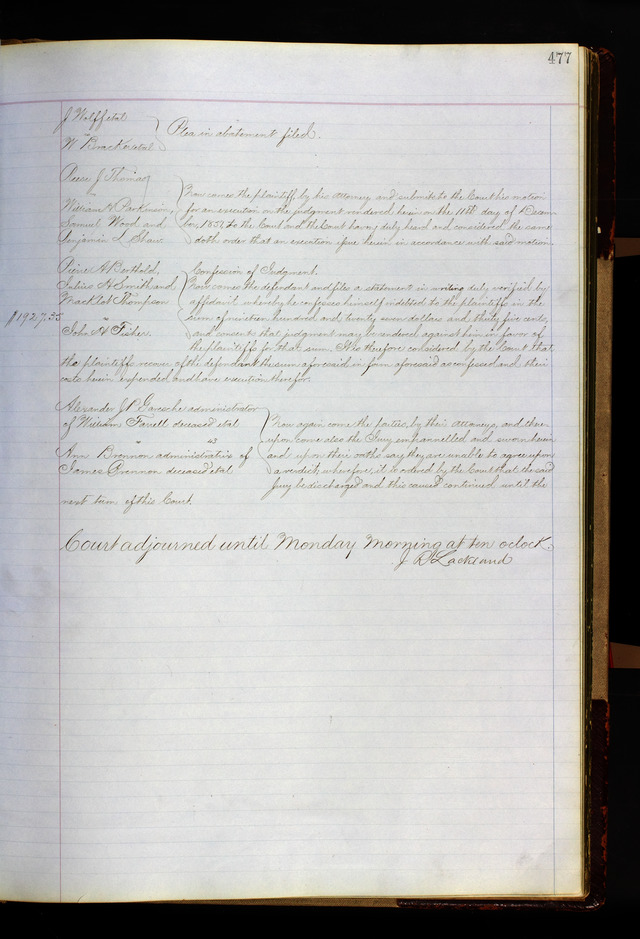 477
J Wolff etal
vs
W Bracker etal
Plea in abatement filed.
Reese J. Thomas
vs
William H. Parkinson,
Samuel Wood and
Benjamin L. Shaw
Now comes the plaintiff, by his Attorney and submits to the Court his motion
for an execution on the judgment rendered herein on the 11th day of Decem
ber, 1857 to the Court and the Court having duly heard and considered the same
doth order that an execution issue herein in accordance with said motion.
Peirre A Berthold,
Julius H Smith and
Macklot Thompson
vs
John H Fisher.
$1927,35
Confession of Judgment.
Now comes the defendant and files a statement in writing duly verified by
affidavit whereby he confesses himself indebted to the plaintiffs in the
sum of nineteen hundred and twenty seven dollars and thirty five cents,
and consents that judgment may be rendered against him in favor of
the plaintiffs for that sum. It is therefore considered by the Court that
the plaintiffs recover of the defendant the sum aforesaid in form aforesaid as confessed and their
costs herein expended and have execution therefor.
Alexander J.P. Garesche administrator
of William Farrell deceased etal
vs 43
Ann Brennon administratrix of
James Brennon deceased etal
Now again come the parties, by their Attorneys, and there-
upon come also the Jury empannelled and sworn herein
and upon their oaths say they are unable to agree upon
a verdict, wherefore, it is ordered by the Court that the said
Jury be discharged and this cause continued until the
next term of this Court.
Court adjourned until Monday Morning at ten oclock.
J R Lackland